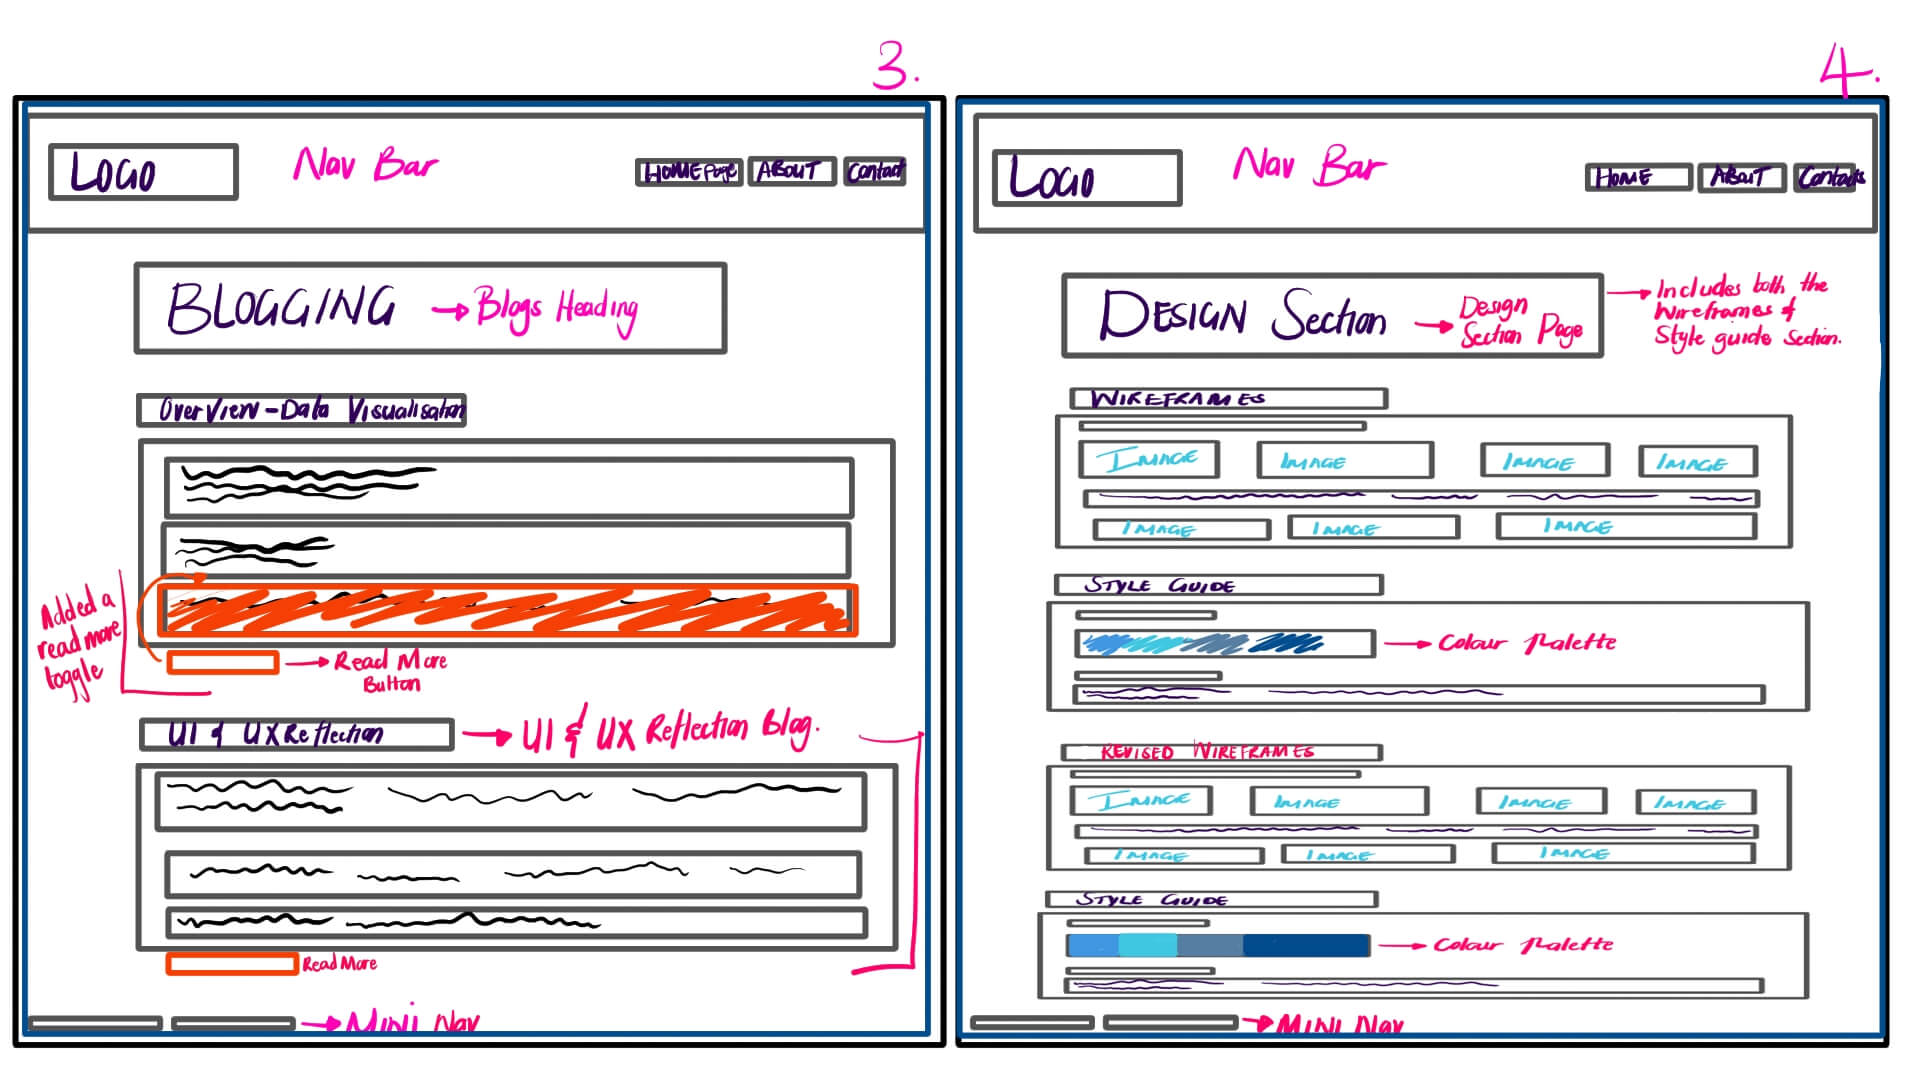 3.
LOGO
Nav Bar
HOMEPage
ABOUT
Contact
BLOGGING → Blogs Heading
OverView - Data Visualisation
Added a
read more
toggle
→ Read More
Button
UI & UX Reflection → UI & UX Reflection Blog.
Read More
→ MINI Nav
4.
LOGO
Nav Bar
HOME
ABOUT
Contacts
DESIGN Section → Design
Section Page
→ Includes both the
Wireframes &
Style guide Section.
WIREFRAMES
IMAGE IMAGE IMAGE IMAGE
IMAGE IMAGE IMAGE
STYLE GUIDE
→ Colour Palette
REVISED WIREFRAMES
IMAGE IMAGE IMAGE IMAGE
IMAGE IMAGE IMAGE
STYLE GUIDE
→ Colour Palette
→ MINI Nav